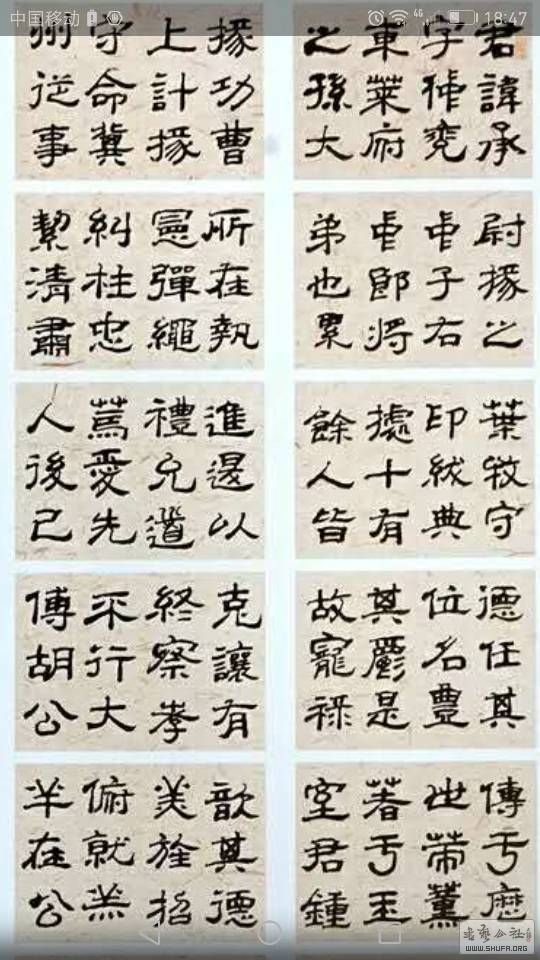 中国移动 4G 18:47
君諱承
字仲兖
東萊府
之孫大
尉掾之
中子右
中郎將
弟也累
葉牧守
印紱典
據十有
餘人皆
德任其
位名豐
其爵是
故寵祿
傳于歷
世帶薰
著于王
室君鍾
掾功曹
上計掾
守命冀
州從事
所在執
憲彈繩
糾枉忠
絜清肅
進退以
禮允道
篤愛先
人後己
克讓有
終察孝
不行大
傅胡公
歆其德
美旌招
俯就羔
羊在公
书艺公社
WWW.SHUFA.ORG